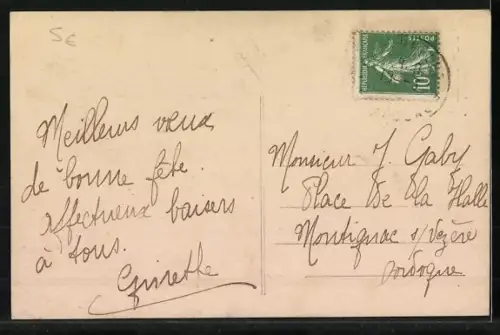 5€
Meilleurs vœux
de bonne fête.
affectueux baisers
à tous.
Ginette
REPUBLIQUE FRANÇAISE
POSTES
10c
Monsieur J. Gaby
Place De la Halle
Montignac s/Vezère
Dordogne